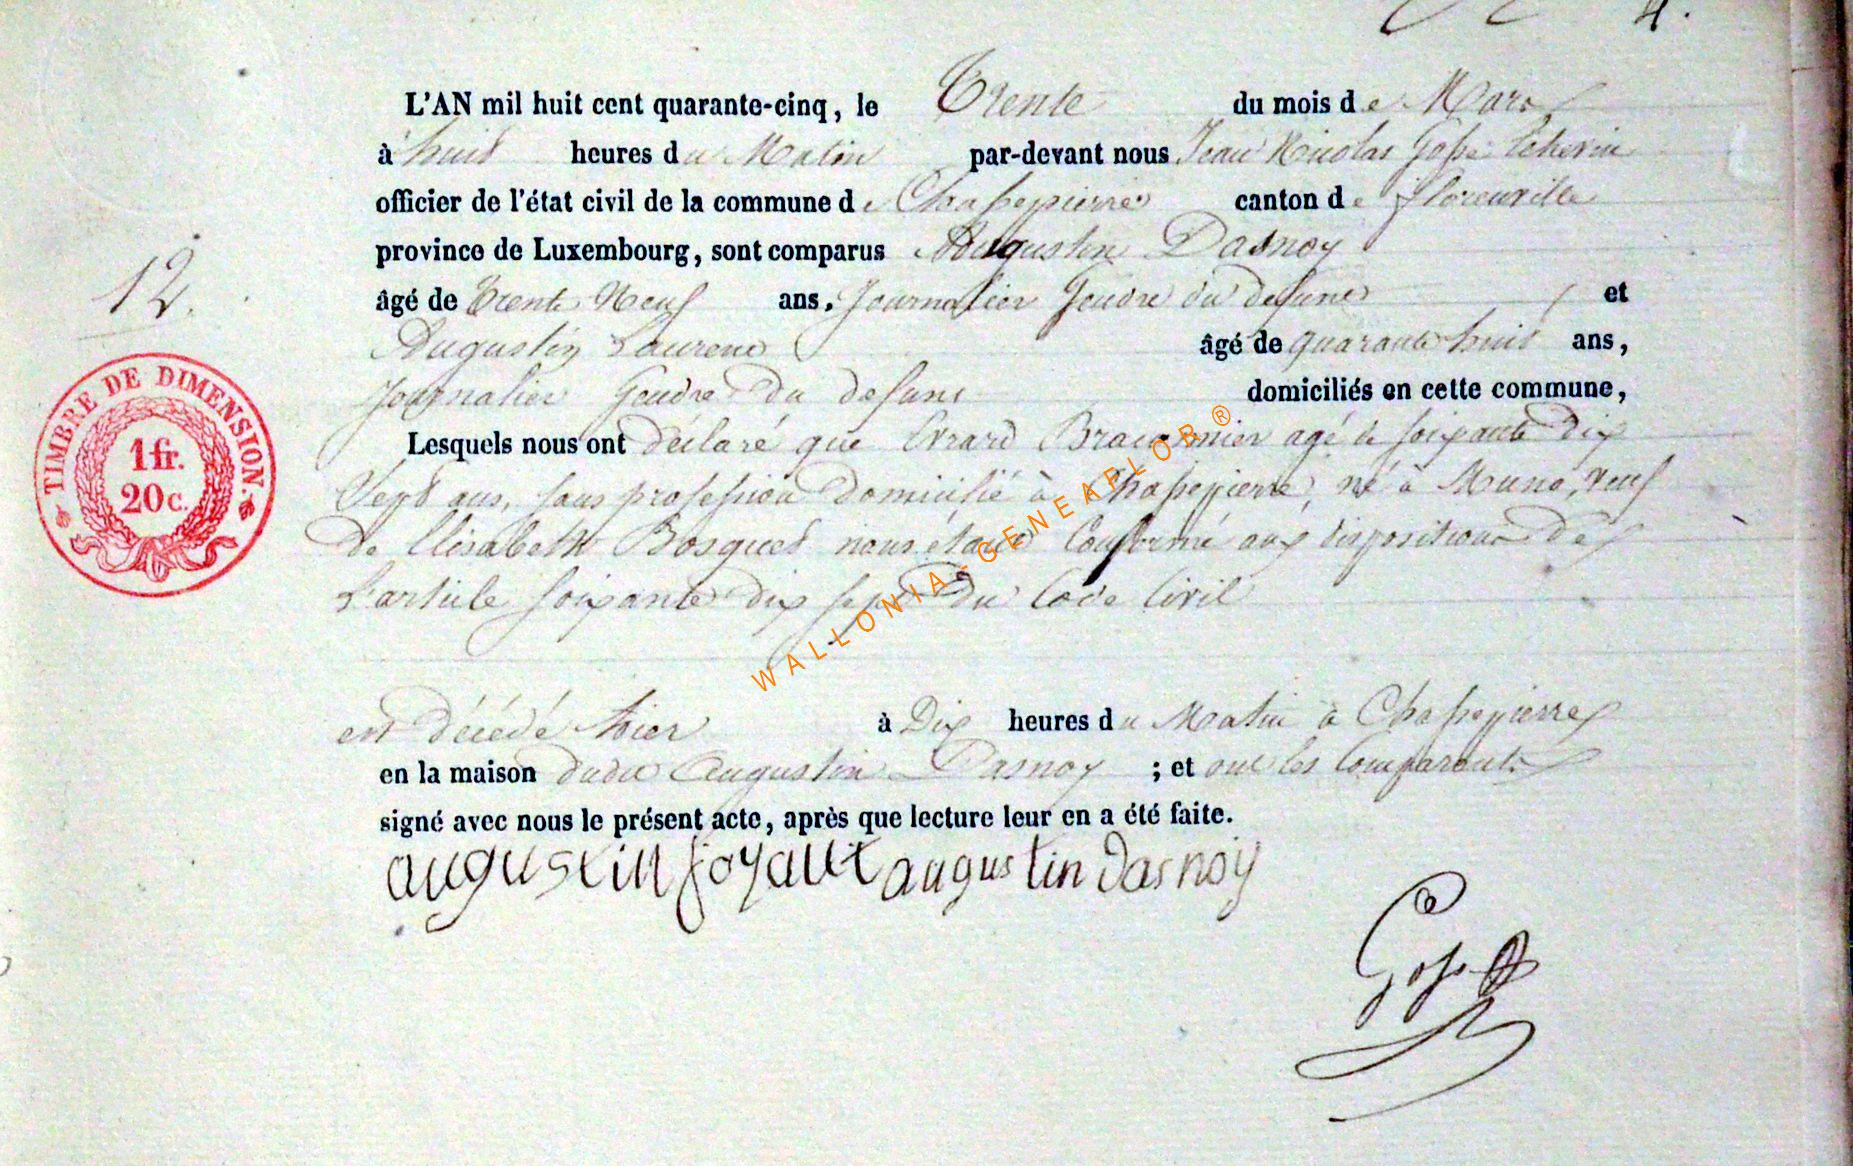 4.
L'AN mil huit cent quarante-cinq, le Trente du mois de Mars
à huit heures du Matin par-devant nous Jean Nicolas Gosse Echevin
officier de l'état civil de la commune de Chassepierre canton de florenville
province de Luxembourg, sont comparus Augustin Dasnoy
12.
âgé de trente Neuf ans, Journalier Gendre du defunt et
Augustin âgé de quarante huit ans,
Journalier Gendre du defunt domiciliés en cette commune,
Lesquels nous ont déclaré que Evrard agé de soixante dix
Sept ans, sans profession domicilié à Chassepierre, né à Muno, veuf
de Elisabeth Bosquet nous étant Conformé aux dispositions de
L'article soixante dix sept du Code Civil
est décédé hier à Dix heures du Matin à Chassepierre
en la maison dudit Augustin Dasnoy ; et ont les Comparants
signé avec nous le présent acte, après que lecture leur en a été faite.
augustin augustin dasnoy
Gosse
TIMBRE DE DIMENSION.
1 fr.
20 c.
WALLONIA-GENEAFLOR®